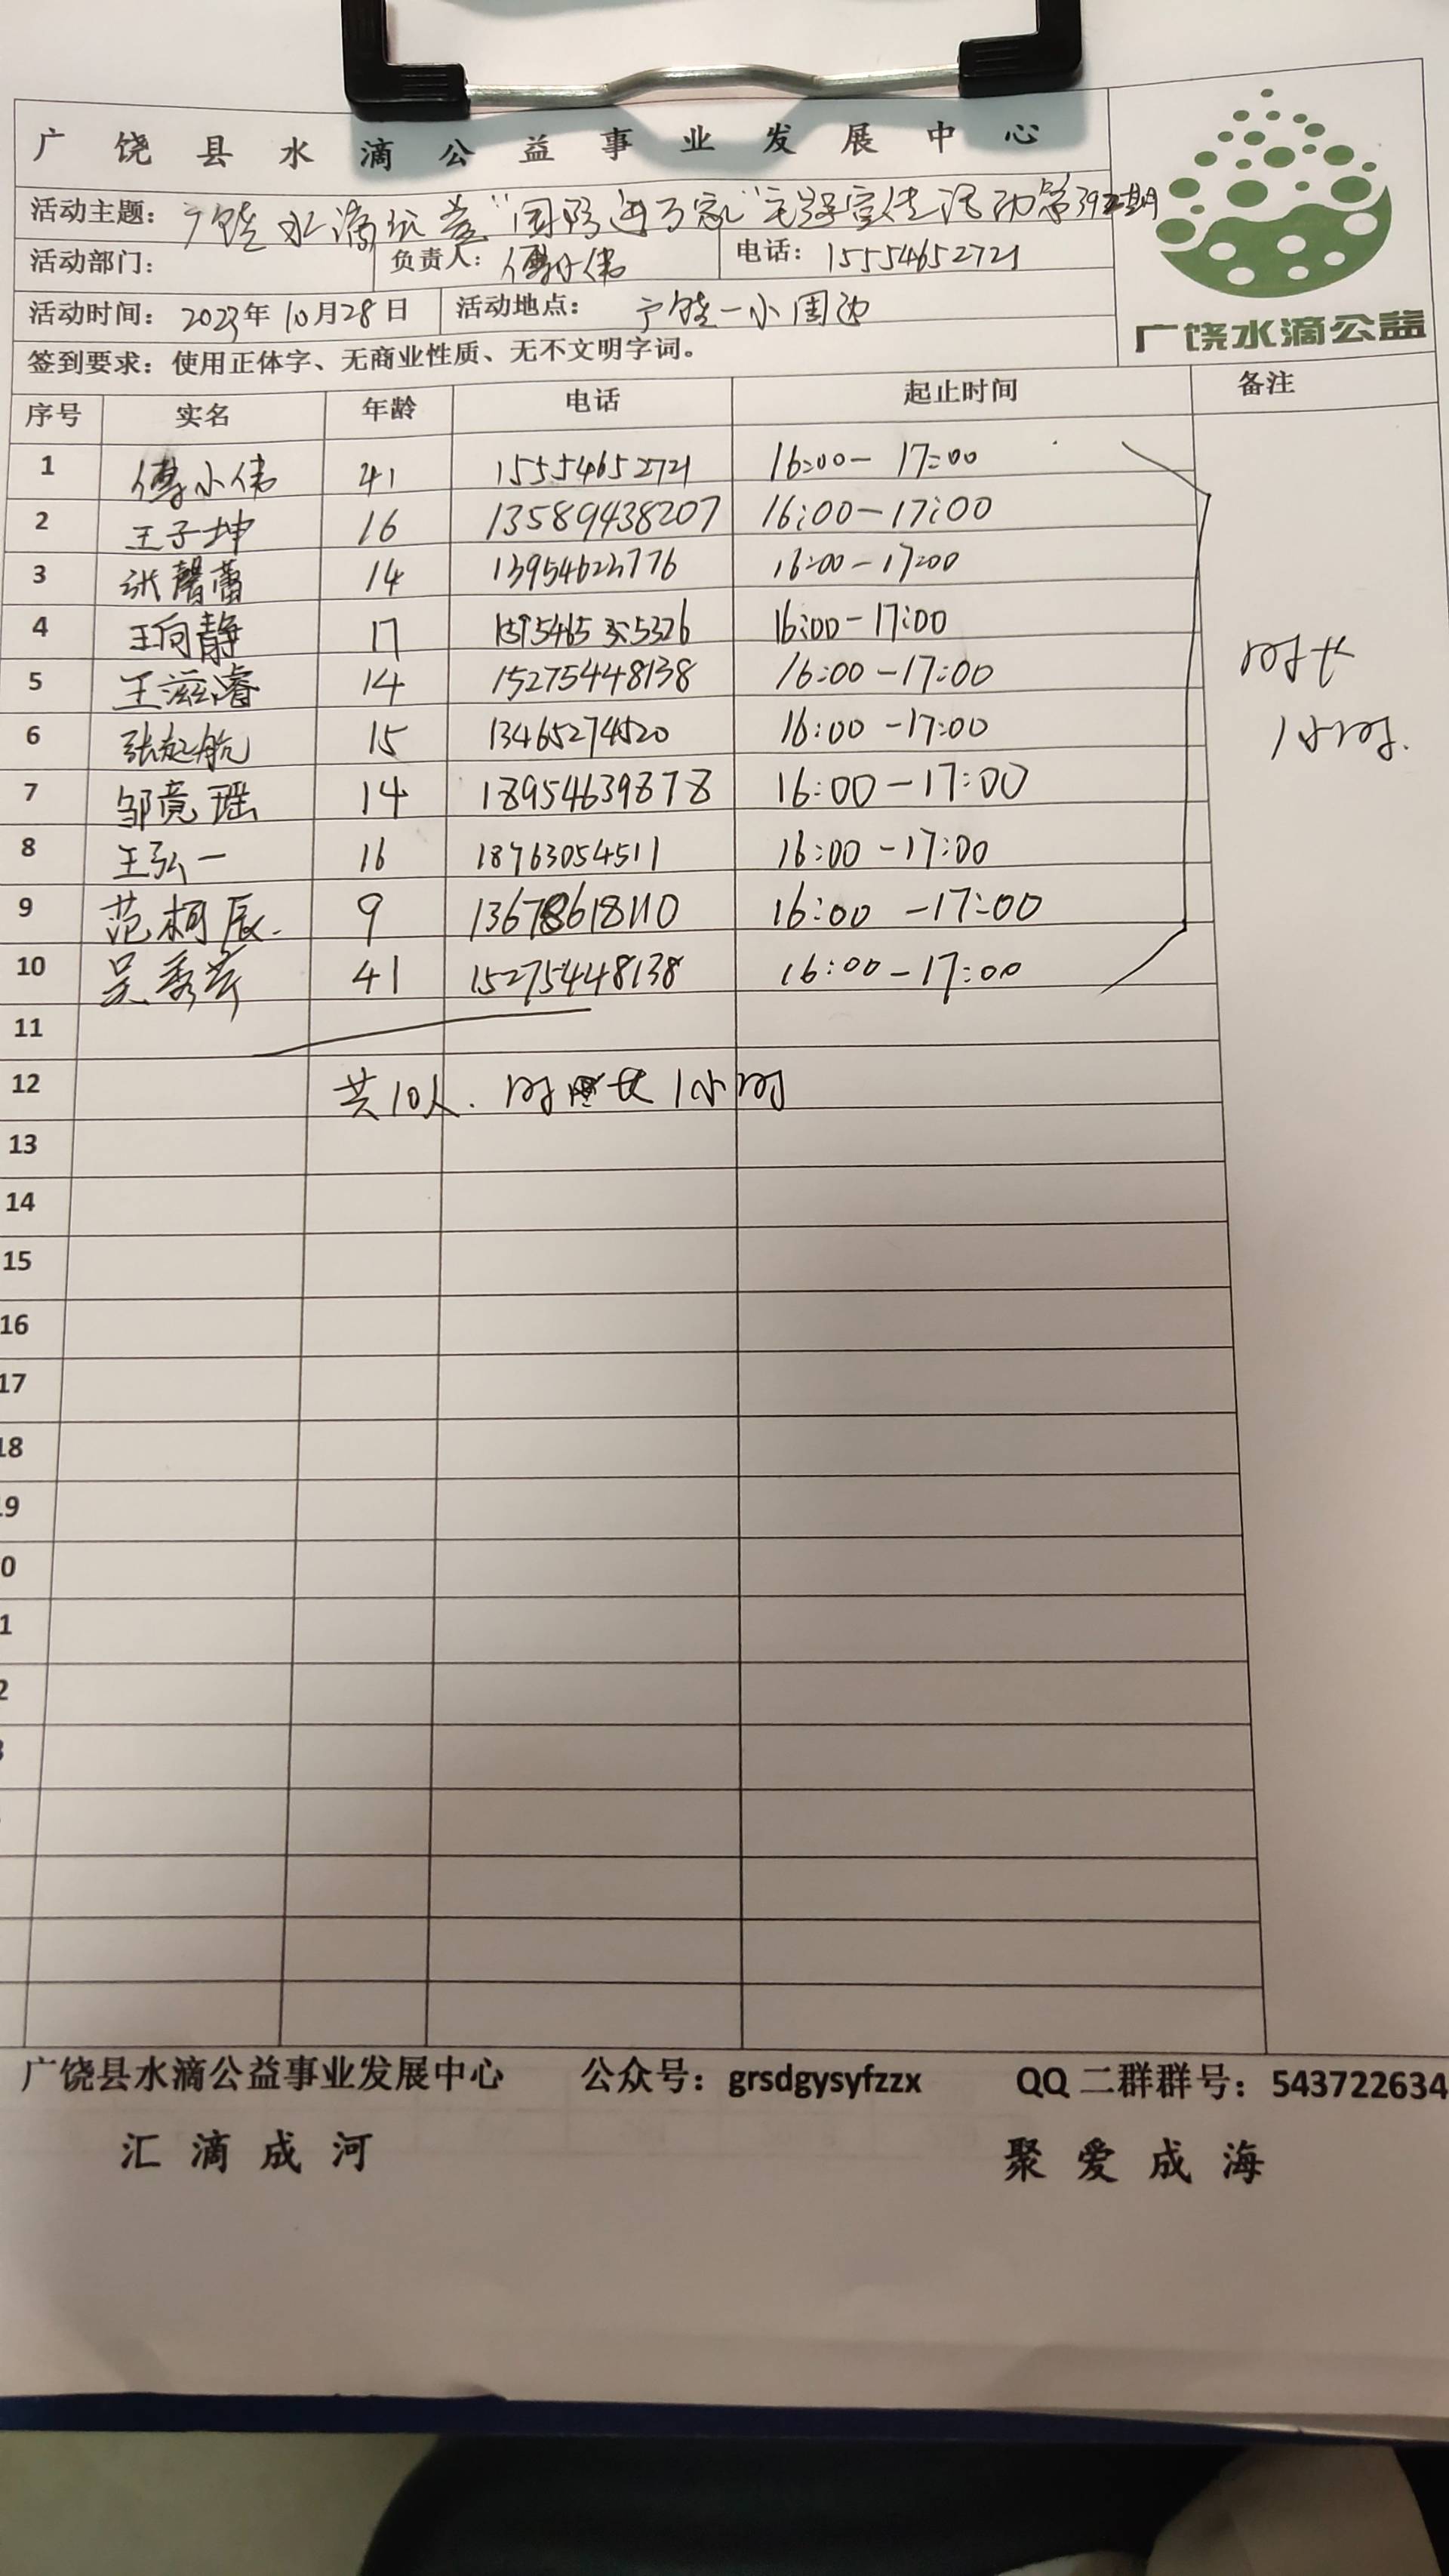 广饶县水滴公益事业发展中心
活动主题：广饶水滴公益“国防进万家”主题宣传活动第39期
活动部门： 负责人：傅小伟 电话：15554652721
活动时间：2023年10月28日 活动地点：广饶一小周边
广饶水滴公益
签到要求：使用正体字、无商业性质、无不文明字词。
序号 实名 年龄 电话 起止时间 备注
1 傅小伟 41 15554652721 16:00-17:00
2 王子坤 16 13589438207 16:00-17:00
3 张馨蕾 14 16:00-17:00
4 王向静 17 16:00-17:00
5 王滋睿 14 15275448138 16:00-17:00
时长
6 张起航 15 13465274520 16:00-17:00
1小时.
7 邹竟瑶 14 18954639878 16:00-17:00
8 王弘一 16 18763054511 16:00-17:00
9 范柯辰. 9 13678618110 16:00-17:00
10 吴秀芹 41 15275448138 16:00-17:00
11
12 共10人. 时长1小时
13
14
15
16
17
18
19
0
1
2
3
广饶县水滴公益事业发展中心 公众号：grsdgysyfzzx QQ二群群号：543722634
汇滴成河 聚爱成海